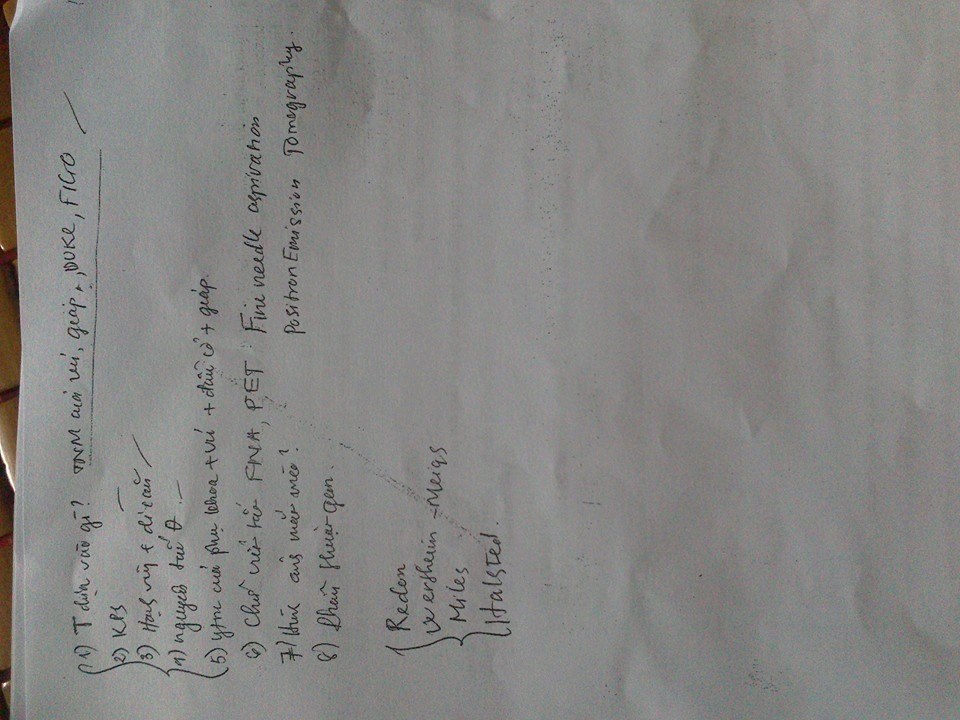 1) T dựa vào gì? TNM của vú, giáp +, DUKE, FIGO
2) KPS
3) Hạng vú + di căn
4) nguyên tắc Θ
5) của phụ khoa + vú + đầu cổ + giáp.
6) Chữ viết tắt FNA, PET : Fine needle aspiration
Positron Emission Tomography.
7)
8) Phẫu thuật gan.
Redon
Wertheim - Meigs
Miles
Halsted.